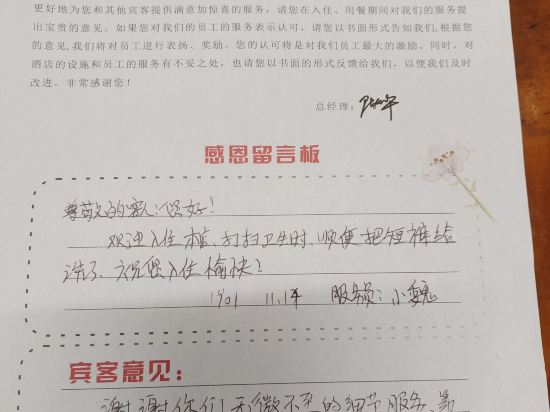 更好地为您和其他宾客提供满意加惊喜的服务，请您在入住、用餐期间对我们的服务提
出宝贵的意见。如果您对我们的员工的服务表示认可，请您以书面形式告知我们,根据您
的意见,我们将对员工进行表扬、奖励。您的认可将是对我们员工最大的激励。同时，对
酒店的设施和员工的服务有不妥之处，也请您以书面的形式反馈给我们，以便我们及时
改进。非常感谢您！
总经理：
感恩留言板
尊敬的客人：您好！
欢迎入住本楼，打扫卫生时，顺便把短裤给
洗了，祝您入住愉快！
1901 11.14 服务员：小魏
宾客意见：
谢谢你们无微不至的细节服务，第